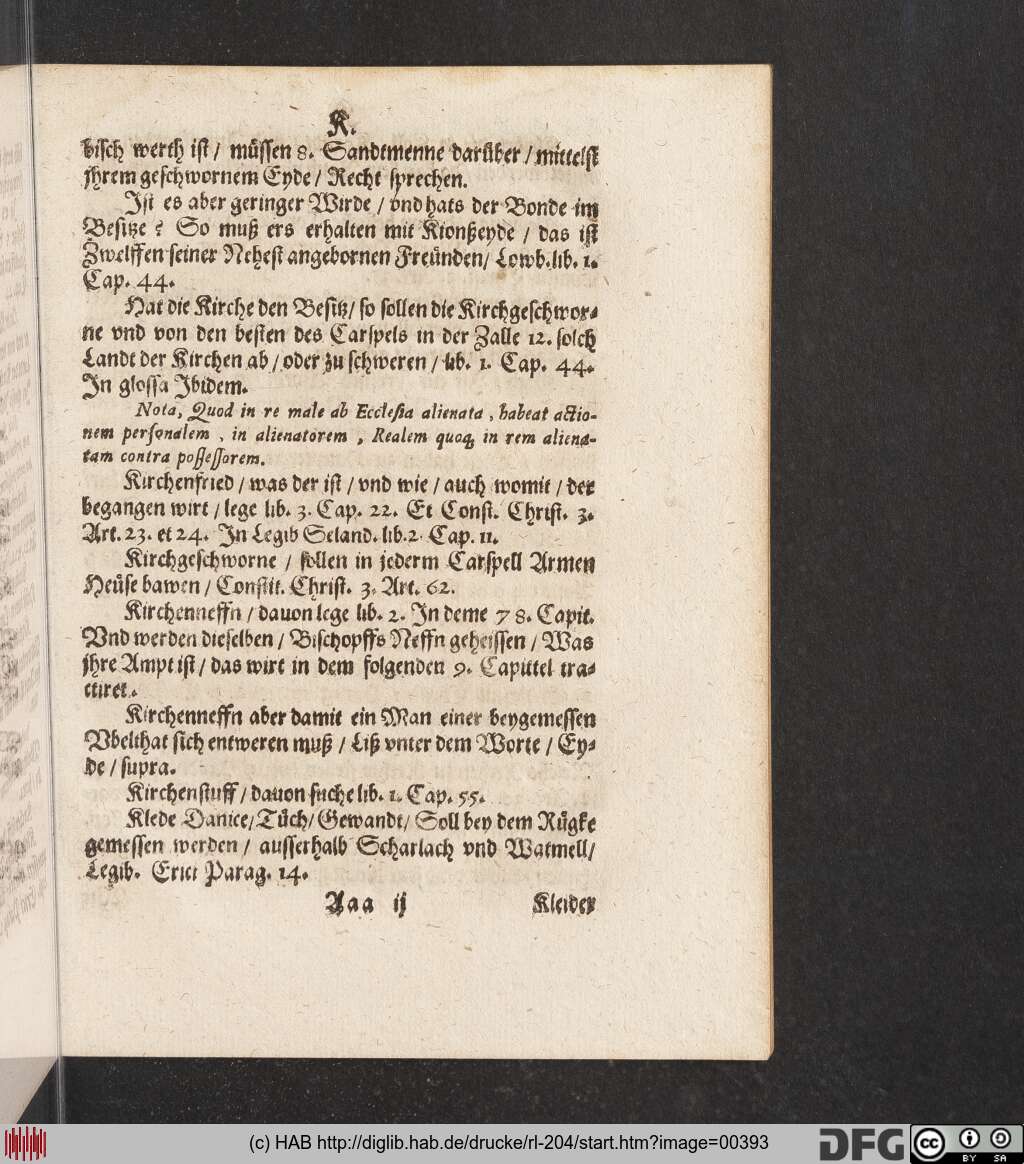 K.
bisch werth ist / müssen 8. Sandtmenne darüber / mittelst
jhrem geschwornem Eyde / Recht sprechen.
Ist es aber geringer Wirde / vnd hats der Bonde im
Besitze? So muß ers erhalten mit Kionßeyde / das ist
Zwelffen seiner Nehest angebornen Freünden / Lowb. lib. 1.
Cap. 44.
Hat die Kirche den Besitz / so sollen die Kirchgeschwor-
ne vnd von den besten des Carspels in der Zalle 12. solch
Landt der Kirchen ab / oder zu schweren / lib. 1. Cap. 44.
In glossa Ibidem.
Nota, Quod in re male ab Ecclesia alienata, habeat actio-
nem personalem, in alienatorem, Realem quoq; in rem aliena-
tam contra possessorem.
Kirchenfried / was der ist / vnd wie / auch womit / der
begangen wirt / lege lib. 3. Cap. 22. Et Const. Christ. 3.
Art. 23. et 24. In Legib Seland. lib. 2 Cap. 11.
Kirchgeschworne / sollen in jederm Carspell Armen
Heüse bawen / Constit. Christ. 3. Art. 62.
Kirchenneffn / dauon lege lib. 2. In deme 78. Capit.
Vnd werden dieselben / Bischopffs Neffn geheissen / Was
jhre Ampt ist / das wirt in dem folgenden 9. Capittel tra-
ctiret.
Kirchenneffn aber damit ein Man einer beygemessen
Vbelthat sich entweren muß / Liß vnter dem Worte / Ey-
de / supra.
Kirchenstuff / dauon suche lib. 1. Cap. 55.
Klede Danice / Tüch / Gewandt / Soll bey dem Rügke
gemessen werden / ausserhalb Scharlach vnd Watmell /
Legib. Erici Parag. 14.
Aaa ij Kleider
(c) HAB http://diglib.hab.de/drucke/rl-204/start.htm?image=00393
DFG
cc BY SA